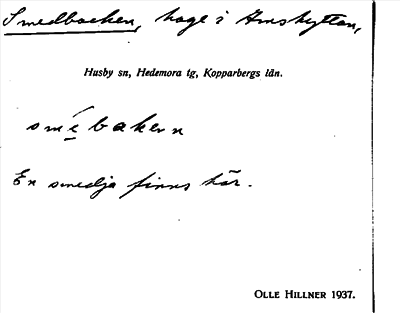 Smedbacken, hage i Amshyttan,
Husby sn, Hedemora tg, Kopparbergs län.
smé̱bakenn
En smedja finns här.
OLLE HILLNER 1937.